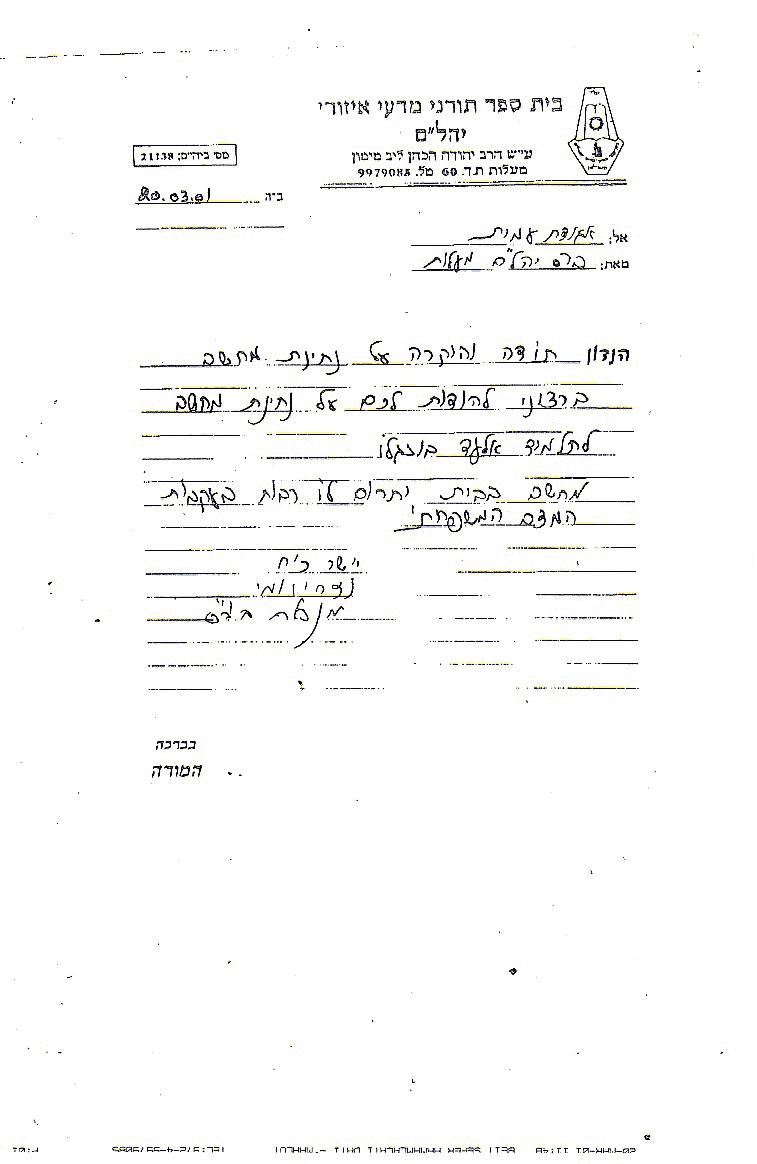 בית ספר תורני מדעי איזורי
יהל״ם
ע״ש הרב יהודה הכהן ליב מימון
מעלות ת.ד. 60 טל. 9979085
מס׳ ביה״ס: 21138
ב״ה 20.03.01
אל: אגודת עמית
מאת: בי״ס יהל״ם מעלות
הנדון תודה והוקרה על נתינת מחשב
ברצוני להודות לכם על נתינת מחשב
לתלמיד אלעד בוזגלו
מחשב בבית יתרום לו רבות בעקבות
המצב המשפחתי
יישר כ״ח
מנהלת ביה״ס
בברכה
המורה